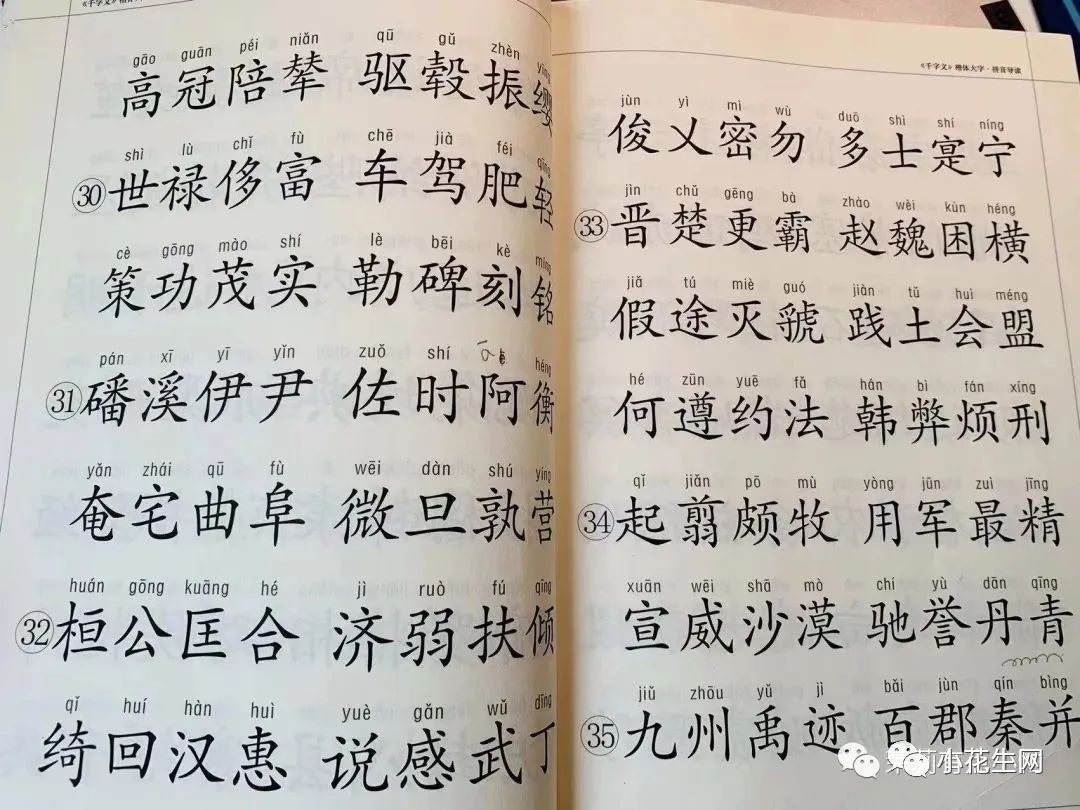 《千字文》楷
gāo guān péi niǎn qū gǔ zhèn yīng
高冠陪辇 驱毂振缨
shì lù chǐ fù chē jià féi qīng
㉚世禄侈富 车驾肥轻
cè gōng mào shí lè bēi kè míng
策功茂实 勒碑刻铭
pán xī yī yǐn zuǒ shí héng
㉛磻溪伊尹 佐时阿衡
yǎn zhái qū fù wēi dàn shú yíng
奄宅曲阜 微旦孰营
huán gōng kuāng hé jì ruò fú qīng
㉜桓公匡合 济弱扶倾
qǐ huí hàn huì yuè gǎn wǔ dīng
绮回汉惠 说感武丁
《千字文》楷体大字·拼音导读
jùn yì mì wù duō shì shí níng
俊乂密勿 多士寔宁
jìn chǔ gēng bà zhào wèi kùn héng
㉝晋楚更霸 赵魏困横
jiǎ tú miè guó jiàn tǔ huì méng
假途灭虢 践土会盟
hé zūn yuē fǎ hán bì fán xíng
何遵约法 韩弊烦刑
qǐ jiǎn pō mù yòng jūn zuì jīng
㉞起翦颇牧 用军最精
xuān wēi shā mò chí yù dān qīng
宣威沙漠 驰誉丹青
jiǔ zhōu yǔ jì bǎi jùn qín bìng
㉟九州禹迹 百郡秦并
小花生网